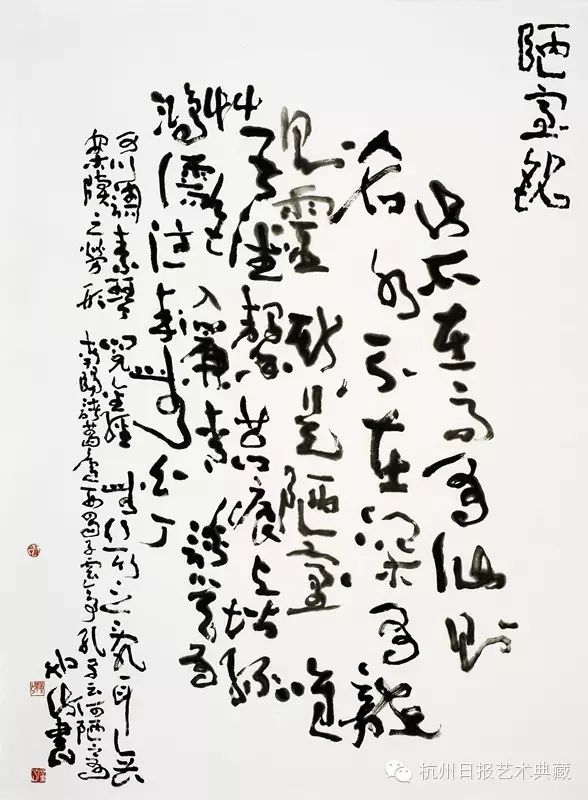 陋室銘
山不在高有仙則
名水不在深有龍
則靈斯是陋室惟
吾德馨苔痕上階綠
艸色入簾青談笑有
鴻儒往來無白丁
可以調素琴閱金經無絲竹之亂耳無
案牘之勞形南陽諸葛廬西蜀子雲亭孔子云何陋之有
書
杭州日报艺术典藏